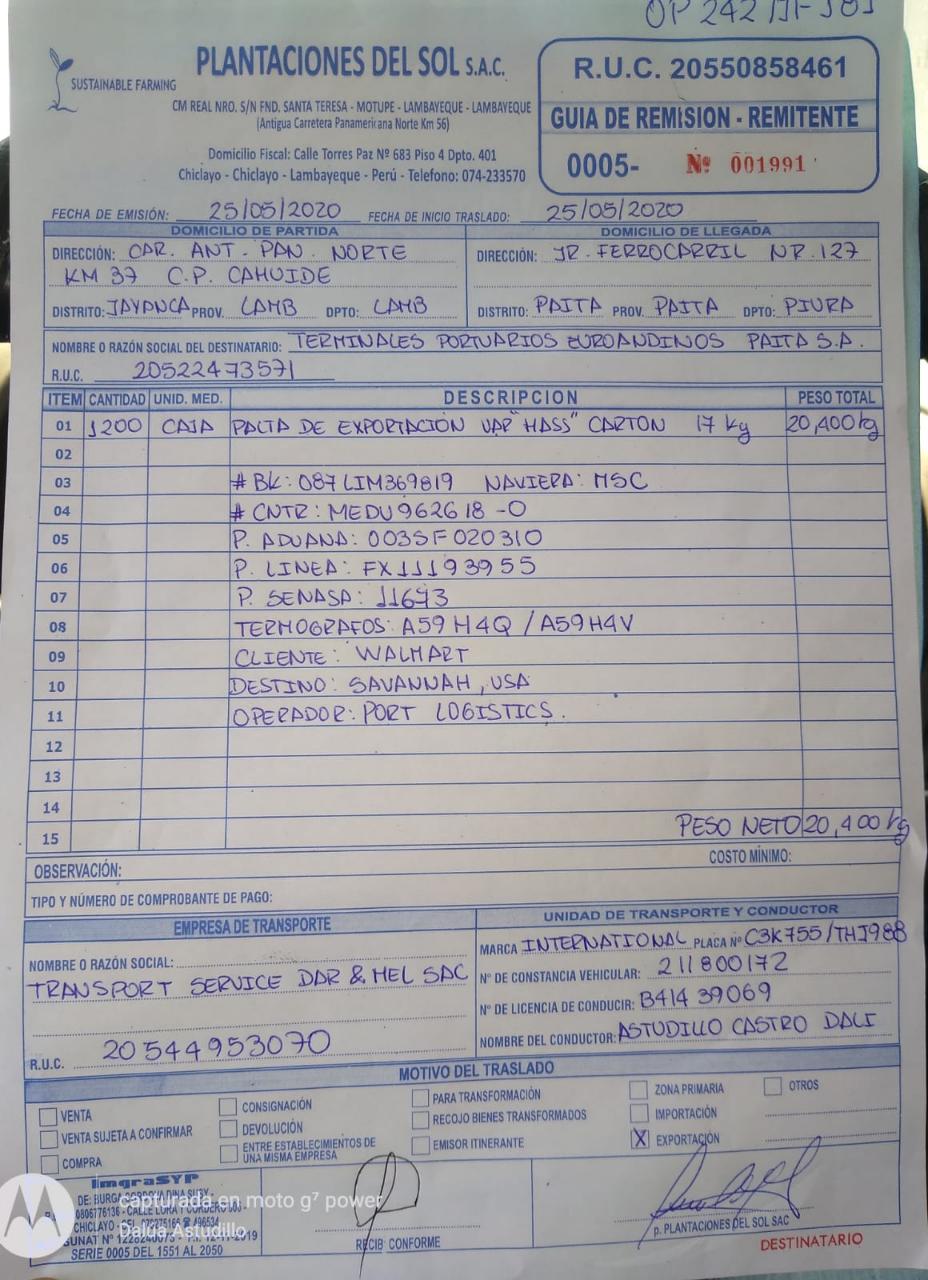 OP 242
SUSTAINABLE FARMING
PLANTACIONES DEL SOL S.A.C.
CM REAL NRO. S/N FND. SANTA TERESA - MOTUPE - LAMBAYEQUE - LAMBAYEQUE
(Antigua Carretera Panamericana Norte Km 56)
Domicilio Fiscal: Calle Torres Paz Nº 683 Piso 4 Dpto. 401
Chiclayo - Chiclayo - Lambayeque - Perú - Telefono: 074-233570
R.U.C. 20550858461
GUIA DE REMISION - REMITENTE
0005- Nº 001991
FECHA DE EMISIÓN: 25/05/2020 FECHA DE INICIO TRASLADO: 25/05/2020
DOMICILIO DE PARTIDA
DIRECCIÓN: CAR. ANT. PAN. NORTE
KM 37 C.P. CAHUIDE
DISTRITO: JAYANCA PROV. LAMB DPTO: LAMB
DOMICILIO DE LLEGADA
DIRECCIÓN: JR. FERROCARRIL NR. 127
DISTRITO: PAITA PROV. PAITA DPTO: PIURA
NOMBRE O RAZÓN SOCIAL DEL DESTINATARIO: TERMINALES PORTUARIOS EUROANDINOS PAITA S.A.
R.U.C. 20522473571
ITEM CANTIDAD UNID. MED. DESCRIPCION PESO TOTAL
01 1200 CAJA PALTA DE EXPORTACIÓN VAR "HASS" CARTON 17 kg 20,400kg
02
03 # BK: 087LIM369819 NAVIERA: MSC
04 # CNTR: MEDU962618-0
05 P. ADUANA: 003SF020310
06 P. LINEA: FX11193955
07 P. SENASA: 11673
08 TERMOGRAFOS: A59H4Q / A59H4V
09 CLIENTE: WALMART
10 DESTINO: SAVANNAH, USA
11 OPERADOR: PORT LOGISTICS.
12
13
14
15 PESO NETO 20,400kg
OBSERVACIÓN: COSTO MÍNIMO:
TIPO Y NÚMERO DE COMPROBANTE DE PAGO:
EMPRESA DE TRANSPORTE
NOMBRE O RAZÓN SOCIAL:
TRANSPORT SERVICE DAR & MEL SAC
R.U.C. 20544953070
UNIDAD DE TRANSPORTE Y CONDUCTOR
MARCA INTERNATIONAL PLACA Nº C3K755/THJ988
Nº DE CONSTANCIA VEHICULAR: 211800172
Nº DE LICENCIA DE CONDUCIR: B41439069
NOMBRE DEL CONDUCTOR: ASTUDILLO CASTRO DALI
MOTIVO DEL TRASLADO
VENTA
VENTA SUJETA A CONFIRMAR
COMPRA
CONSIGNACIÓN
DEVOLUCIÓN
ENTRE ESTABLECIMIENTOS DE
UNA MISMA EMPRESA
PARA TRANSFORMACIÓN
RECOJO BIENES TRANSFORMADOS
EMISOR ITINERANTE
ZONA PRIMARIA
IMPORTACIÓN
X EXPORTACIÓN
OTROS
ImgraSYP
SERIE 0005 DEL 1551 AL 2050
capturada en moto g⁷ power
Dalua Astudillo
RECIBI CONFORME
p. PLANTACIONES DEL SOL SAC
DESTINATARIO